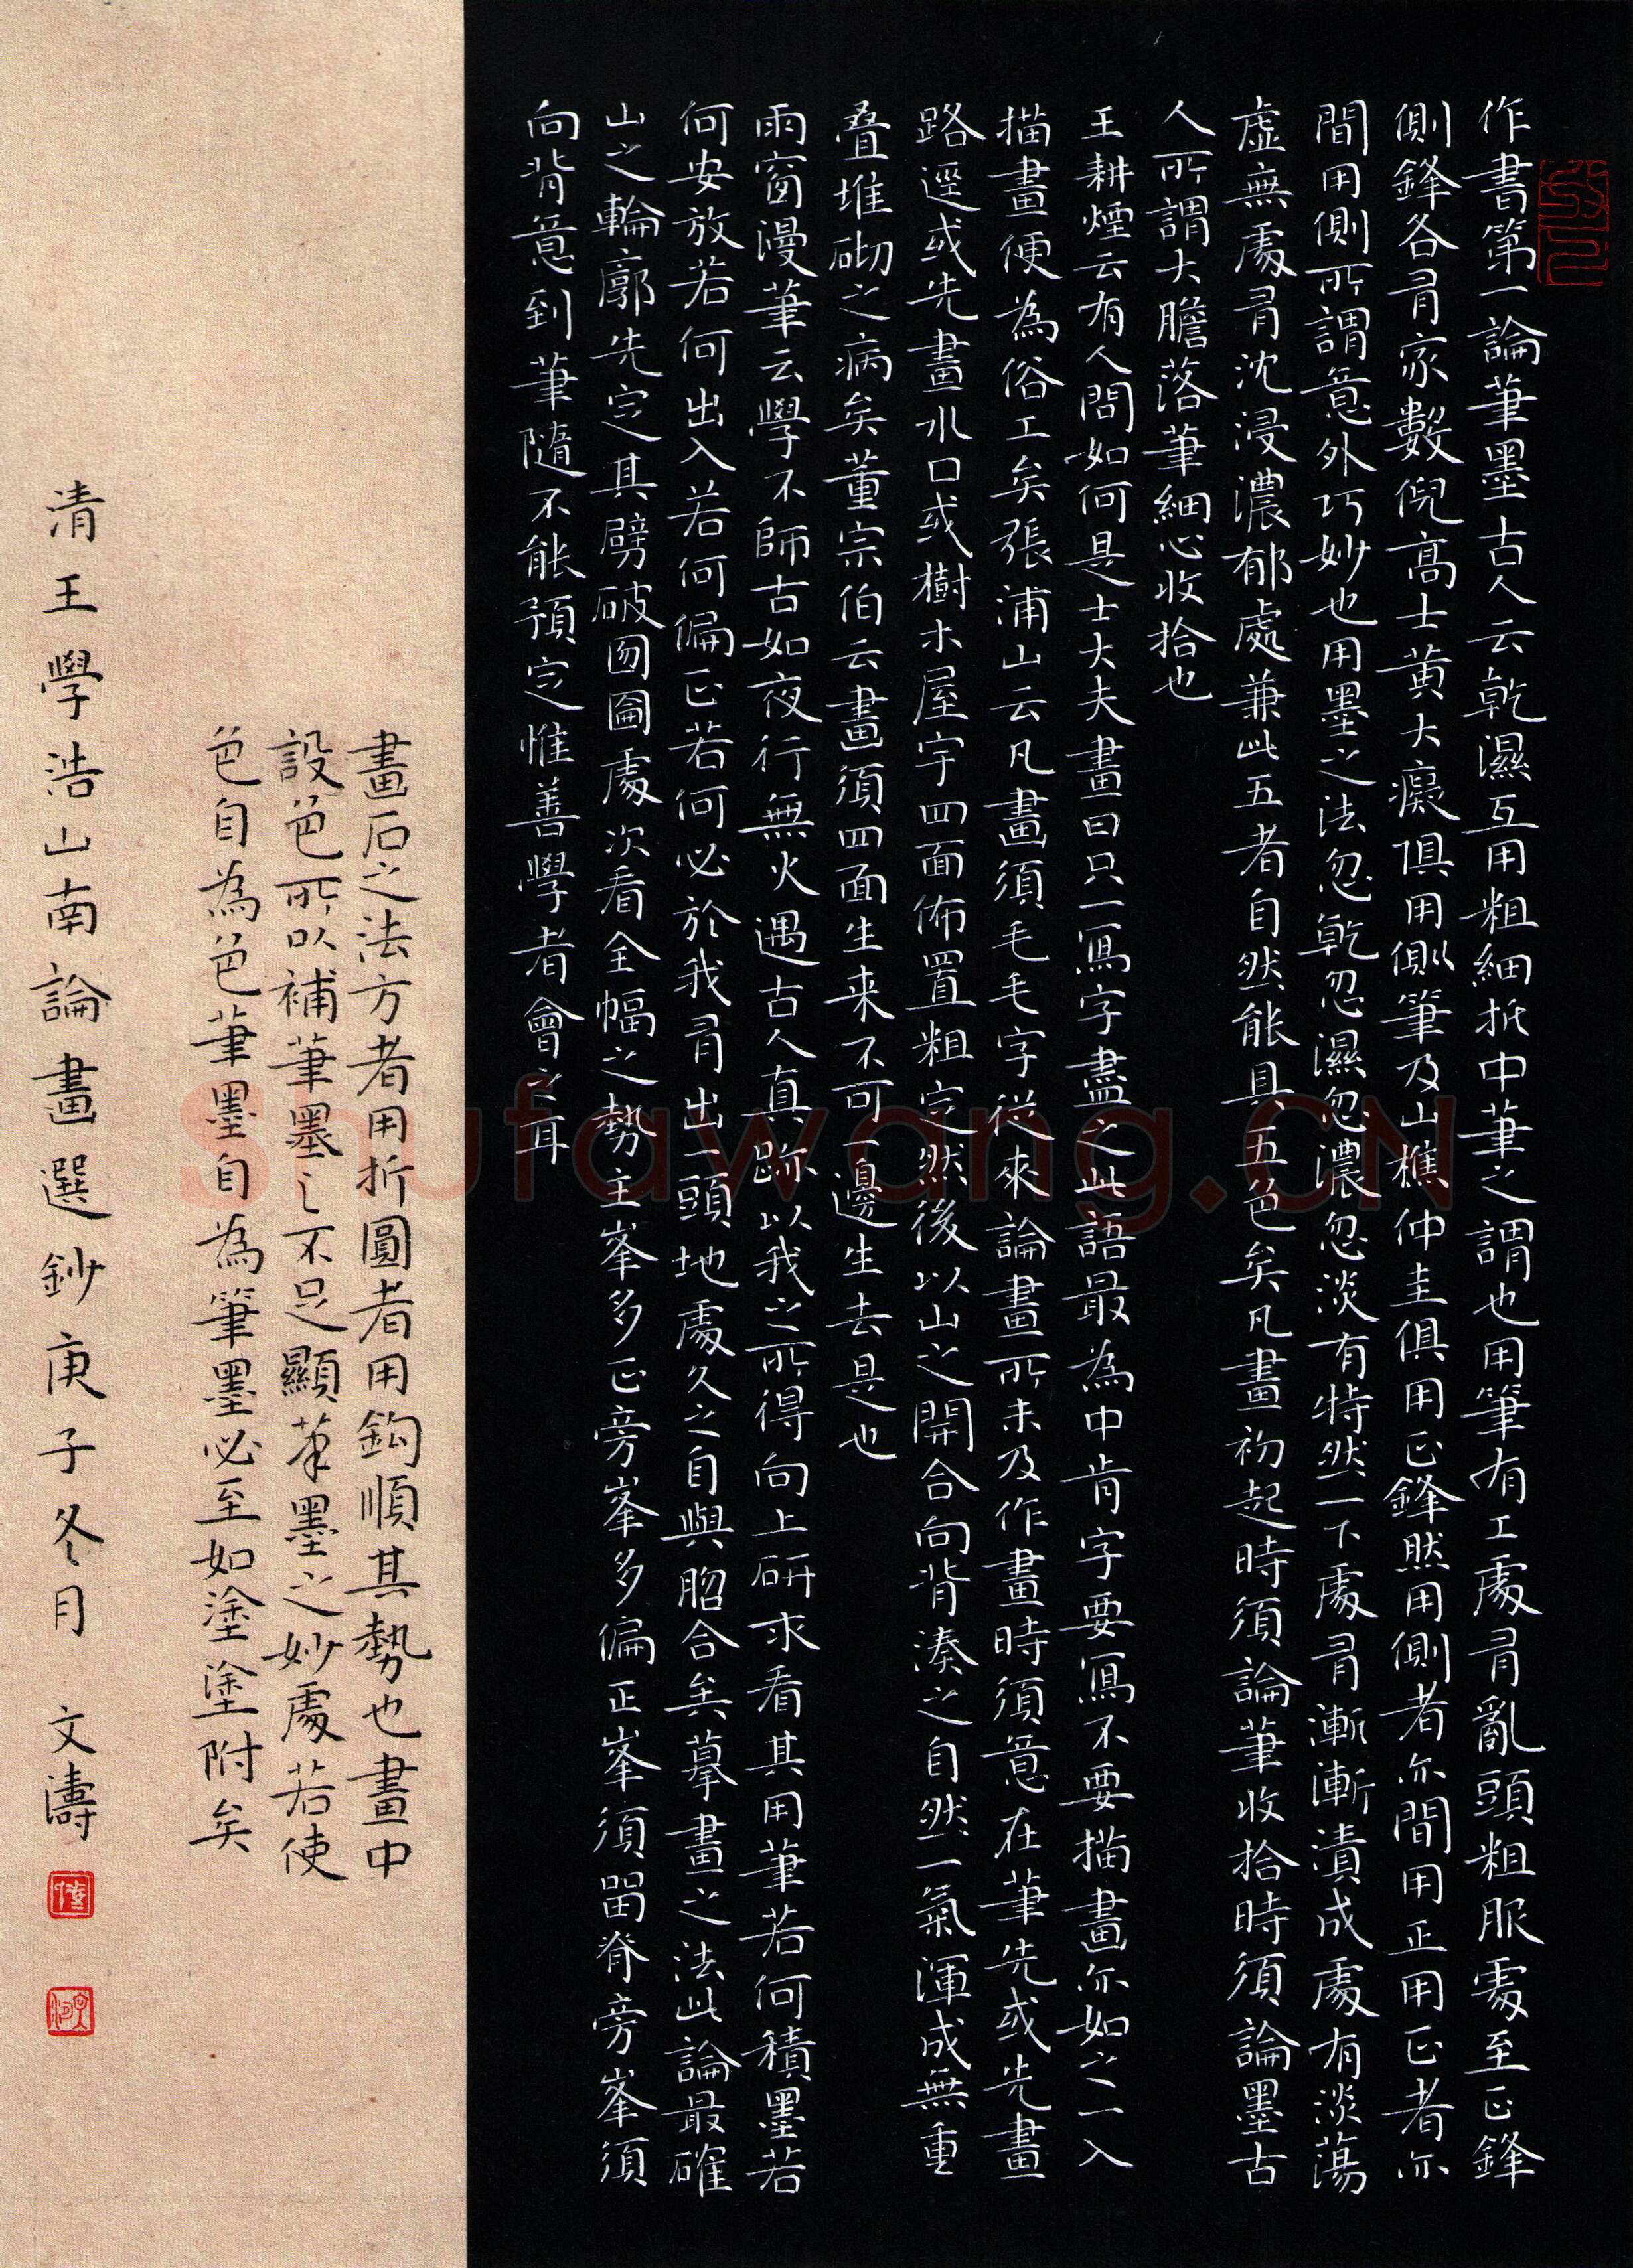 作書第一論筆墨古人云乾濕互用粗細折中筆之謂也用筆有工處有亂頭粗服處至正鋒
側鋒各有家數倪高士黃大癡俱用側筆及山樵仲圭俱用正鋒然用側者亦間用正用正者亦
間用側所謂意外巧妙也用墨之法忽乾忽濕忽濃忽淡有特然一下處有漸漸漬成處有淡蕩
虛無處有沈浸濃郁處兼此五者自然能具五色矣凡畫初起時須論筆收拾時須論墨古
人所謂大膽落筆細心收拾也
王耕煙云有人問如何是士大夫畫曰只一寫字盡之此語最為中肯字要寫不要描畫亦如之一入
描畫便為俗工矣張浦山云凡畫須毛毛字從來論畫所未及作畫時須意在筆先或先畫
路逕或先畫水口或樹木屋宇四面佈置粗定然後以山之開合向背湊之自然一氣渾成無重
疊堆砌之病矣董宗伯云畫須四面生来不可一邊生去是也
雨窗漫筆云學不師古如夜行無火遇古人真跡以我之所得向上研求看其用筆若何積墨若
何安放若何出入若何偏正若何必於我有出一頭地處久之自與脗合矣摹畫之法此論最確
山之輪廓先定其劈破囫圇處次看全幅之勢主峯多正旁峯多偏正峯須留脊旁峯須
向背意到筆隨不能預定惟善學者會之耳
畫石之法方者用折圓者用鈎順其勢也畫中
設色所以補筆墨之不足顯筆墨之妙處若使
色自為色筆墨自為筆墨必至如塗塗附矣
清王學浩山南論畫選鈔庚子冬月 文濤
Shufawang.CN